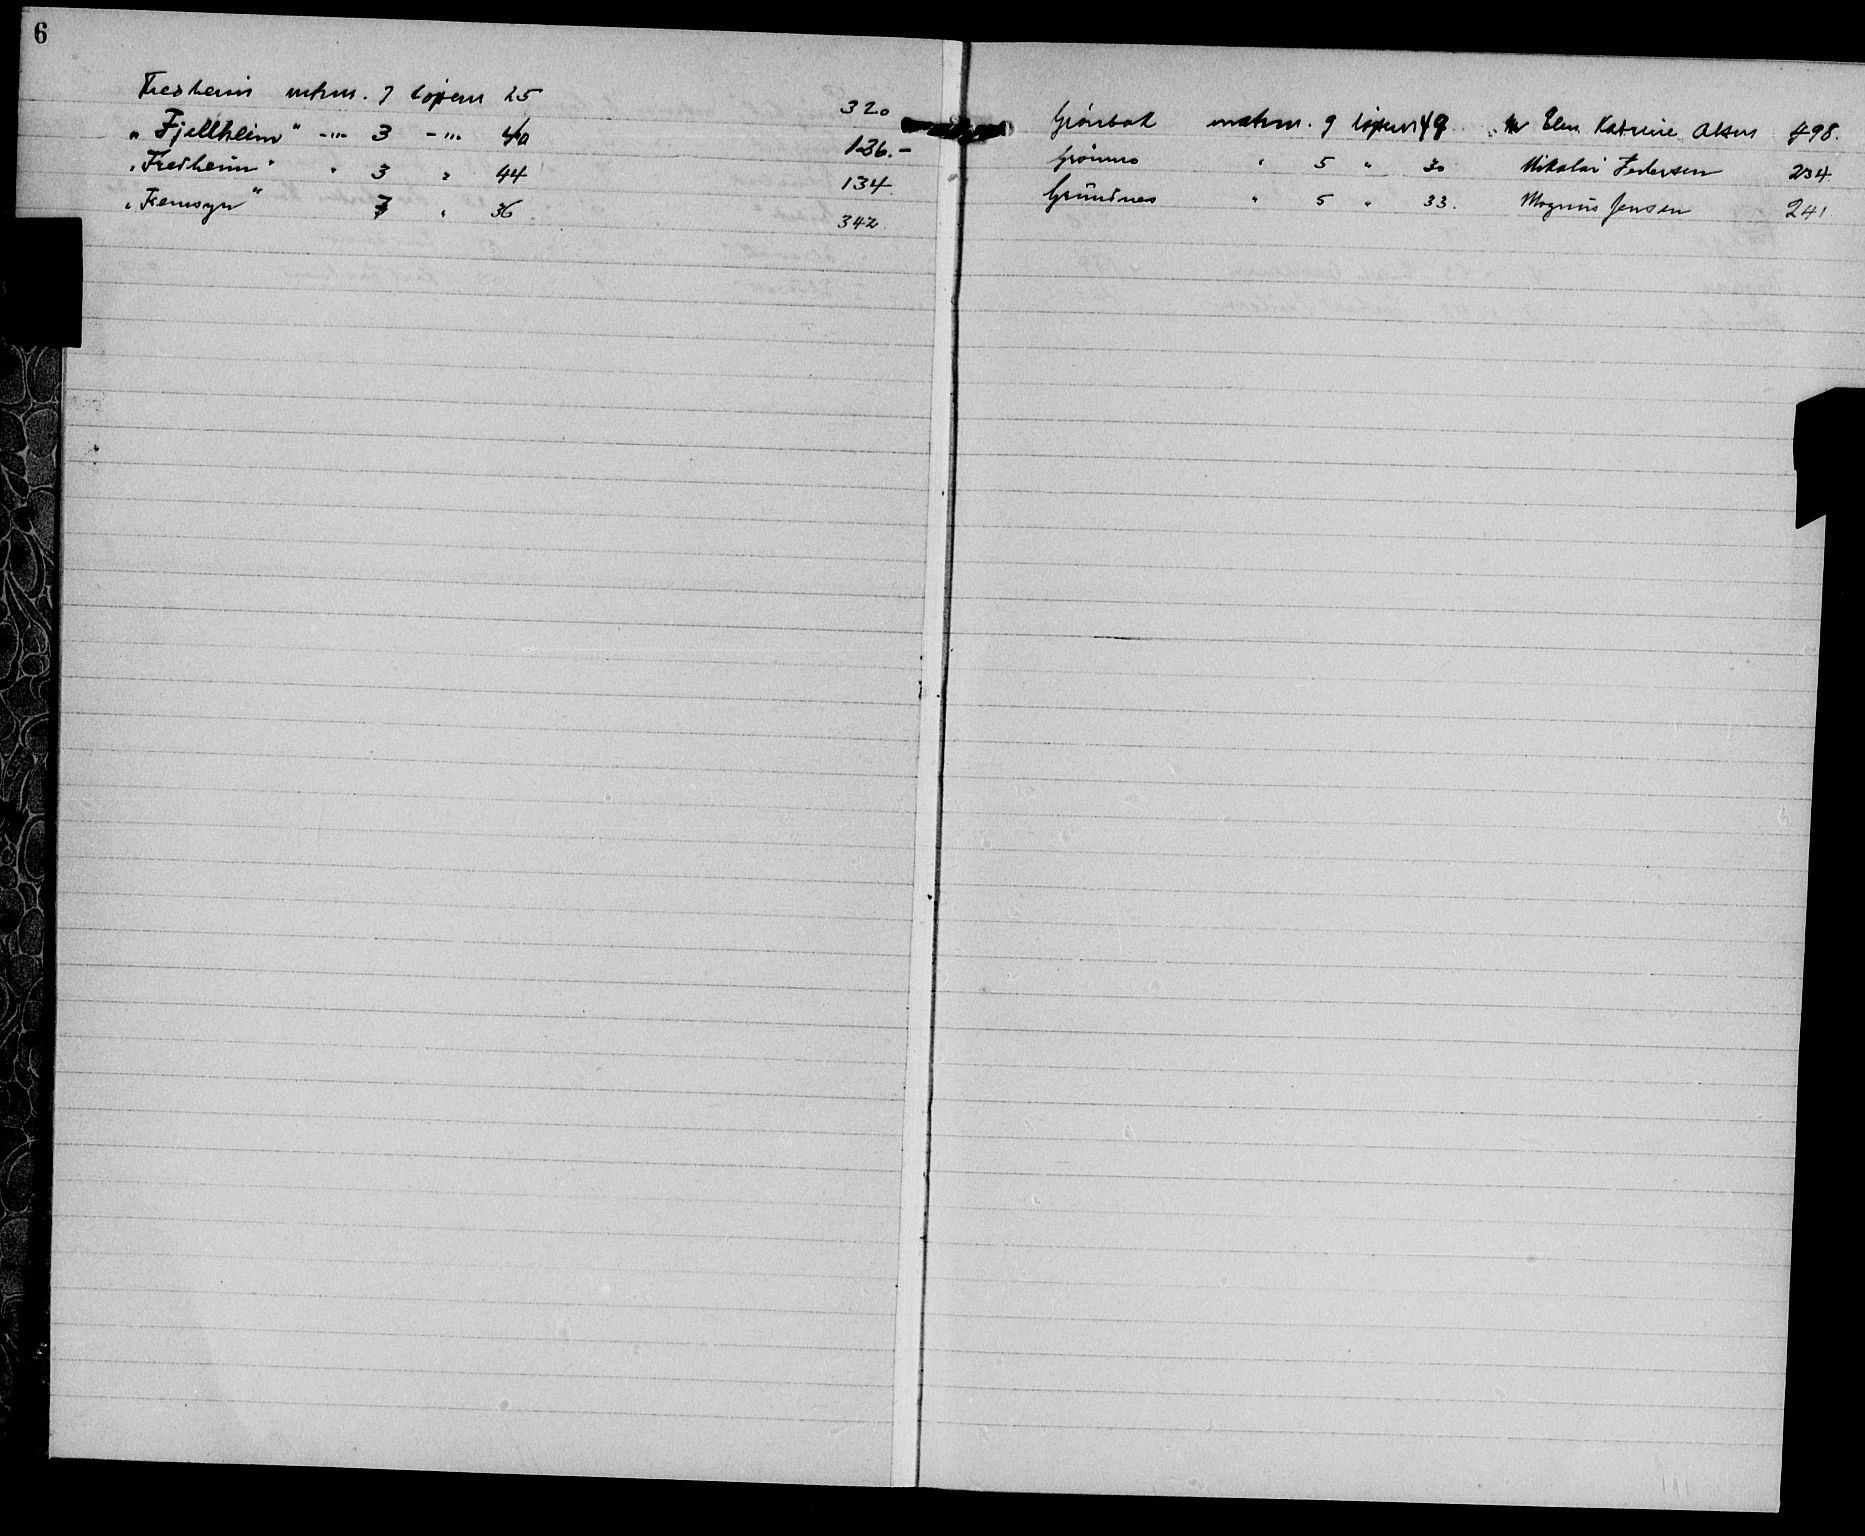 6
Fredheim mtrnr. 7 löpenr 25 320
"Fjellheim" -"- 3 -"- 40 136.-
"Fredheim" " 3 " 44 134
"Fremsyn" 7 " 36 342
Grönbak matrnr. 9 löpenr 49 Elen Katrine Olsen 498.
Grönmo " 5 " 30 Nikolai Pedersen 234
Grundnes " 5 " 33. Magnus Jensen 241